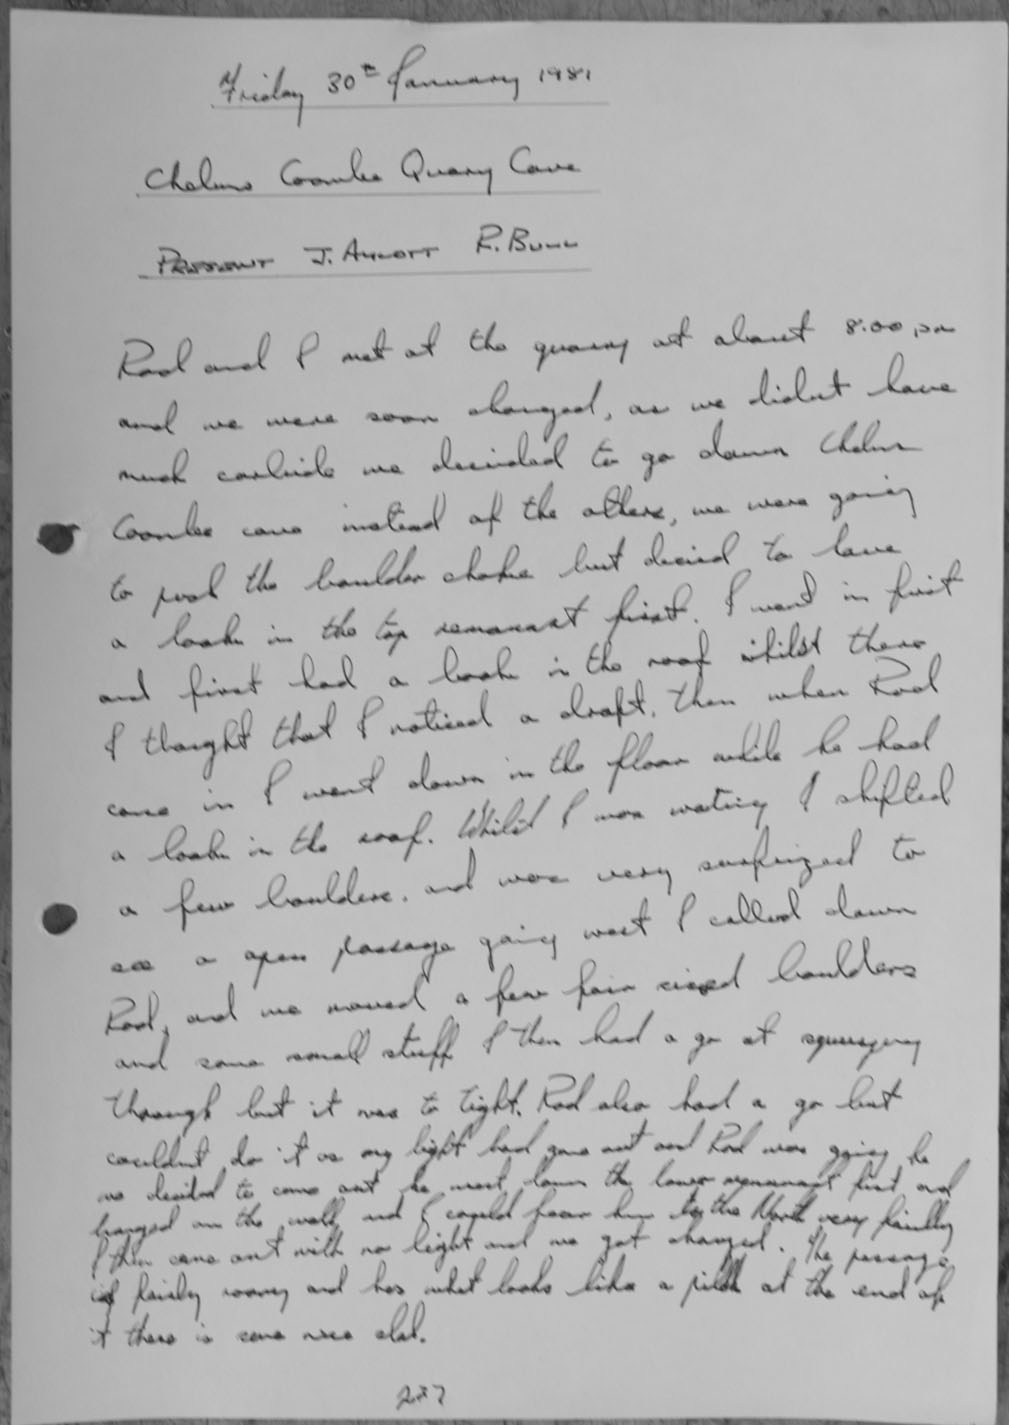 Friday 30th January 1981
Chelms Coombe Quarry Cave
PRESENT J. AYLOTT R. BULL
Rod and I met at the quarry at about 8:00 pm
and we were soon changed, as we didnt have
much carbide we decided to go down Chelm
Coombe cave instead of the others, we were going
to push the boulder choke but decied to have
a look in the top remanant first. I went in first
and first had a look in the roof whilst there
I thought that I noticed a draft. Then when Rod
came in I went down in the floor while he had
a look in the roof. Whilst I was wating I shifted
a few boulders. and was very surprized to
see a open passage going west I called down
Rod, and we moved a few fair sized boulders
and some small stuff I then had a go at
through but it was to tight. Rod also had a go but
couldnt do it as my light had gone out and Rod was going
we decided to come out he went down the lower remanant first and
banged on the wall, and I could hear him to the North very faintly
I then came out with no light and we got changed. The passage
is fairly roomy and has what looks like a at the end of
it there is some nice
237